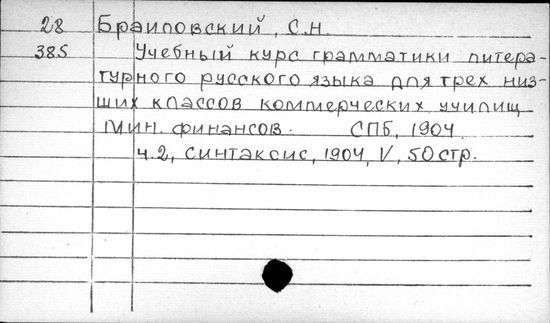 28 Браиловский, С.Н.
385 Учебный курс грамматики литера-
турного русского языка для трех низ-
ших классов коммерческих училищ
Мин. финансов. СПБ, 1904.
ч.2, синтаксис, 1904, V, 50 стр.